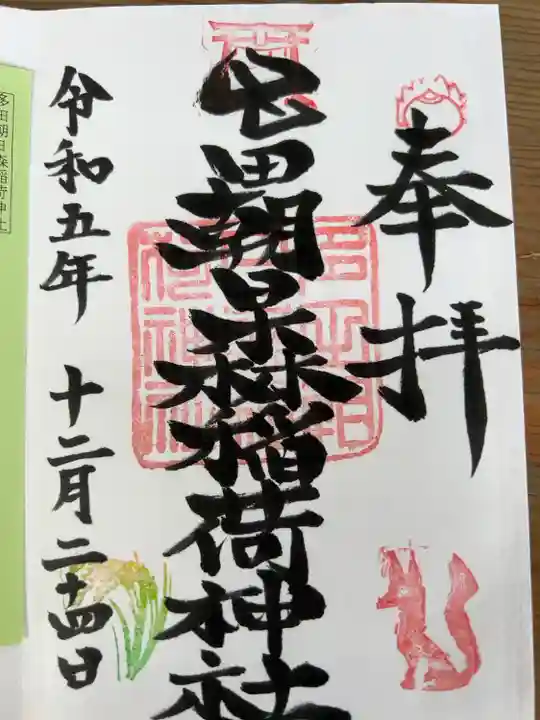 奉拝
多田朝日森稲荷神社
令和五年 十二月二十四日
多田朝日森稲荷神社